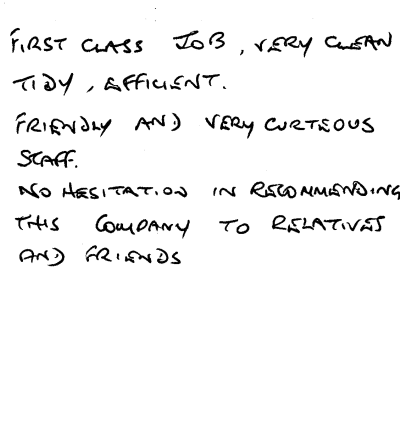 FIRST CLASS JOB, VERY CLEAN
TIDY, EFFICIENT.
FRIENDLY AND VERY CURTEOUS
STAFF.
NO HESITATION IN RECOMMENDING
THIS COMPANY TO RELATIVES
AND FRIENDS